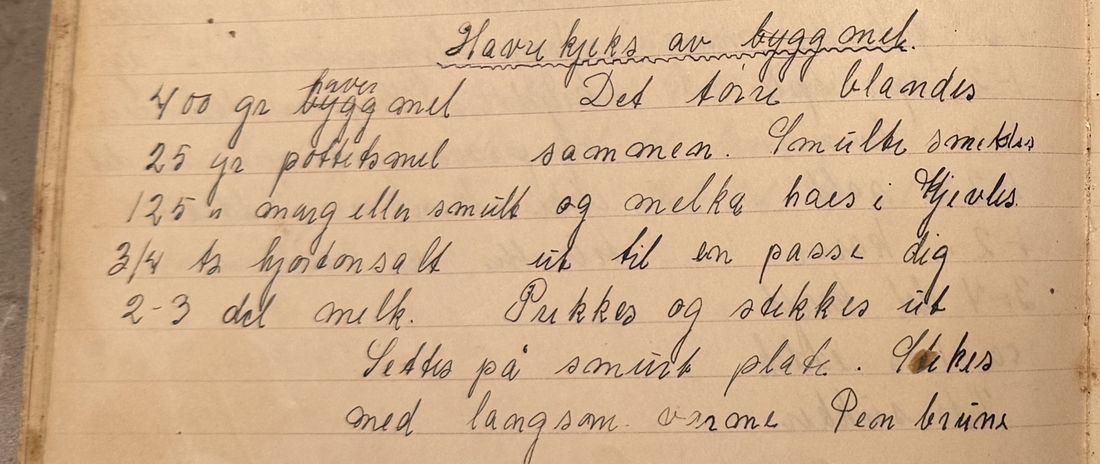 Havre kjeks av byggmel.
400 gr byggmel haver Det tørre blandes
25 gr pottetsmel sammen. Smulte smeltes
125 " marg eller smult og melka haes i Kjevles
3/4 ts hjortonsalt ut til en passe dig
2-3 del melk. Prikkes og stekkes ut
Settes på smurt plate. Stekes
med langsom varme Pen brune